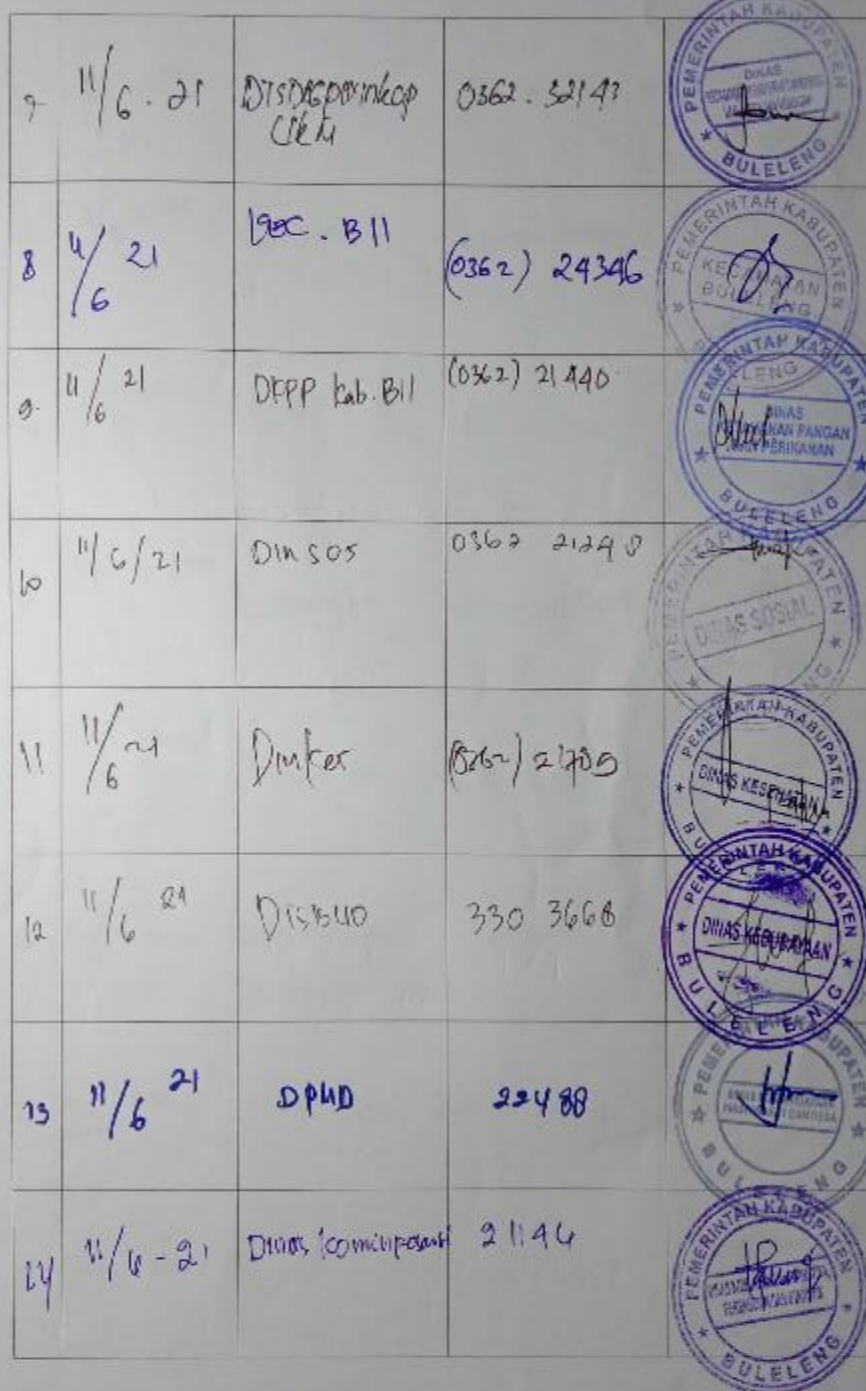 11/6 - 21
0362 - 32143
PEMERINTAH KABUPATEN
DINAS
BULELENG
8
11/6 21
Kec. Bll
(0362) 24346
PEMERINTAH KABUPATEN
KECAMATAN
BULELENG
9.
11/6 21
DKPP Kab. Bll
(0362) 21440
PEMERINTAH KABUPATEN
DINAS
KETAHANAN PANGAN
DAN PERIKANAN
BULELENG
10
11/6/21
Dinsos
0362
PEMERINTAH KABUPATEN
DINAS SOSIAL
11
11/6 21
Dinkes
PEMERINTAH KABUPATEN
DINAS KESEHATAN
12
11/6 21
DISBUD
330 3668
PEMERINTAH KABUPATEN
DINAS KEBUDAYAAN
BULELENG
13
11/6 21
DPMD
22488
BULELENG
14
11/6 - 21
Dinas
PEMERINTAH KABUPATEN
BULELENG